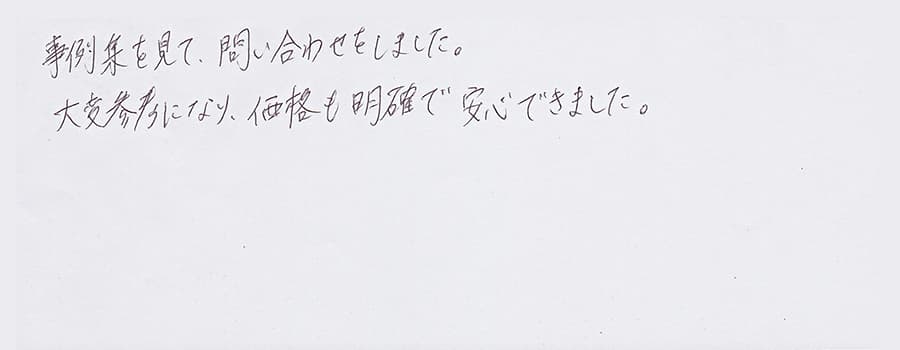 事例集を見て、問い合わせをしました。
大変参考になり、価格も明確で安心できました。